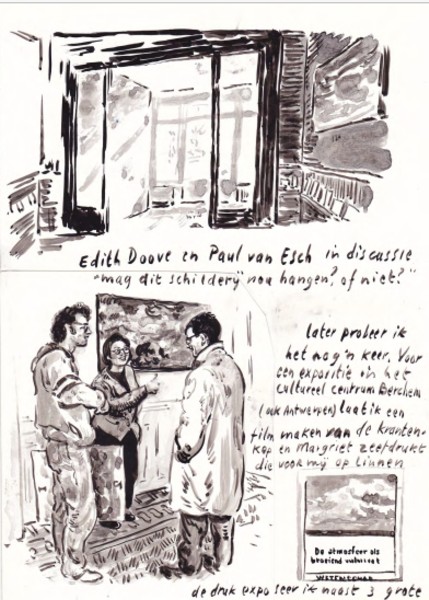 Edith Doove en Paul van Esch in discussie
"mag dit schilderij nou hangen? of niet?"
later probeer ik
het nog 'n keer. Voor
een expositie in het
Cultureel centrum Berchem
(ook Antwerpen) laat ik een
film maken van de kranten-
kop en Margriet zeefdrukt
die voor mij op linnen
De atmosfeer als
broeiend vulvaat
WETENSCHAP
de druk exposeer ik naast 3 grote